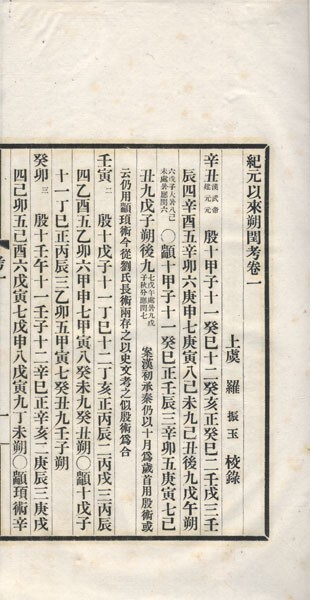 紀元以來朔閏考卷一
上虞 羅 振玉 校錄
辛丑 漢武帝建元元 殷十甲子十一癸巳十二癸亥正癸巳二壬戌三壬
辰四辛酉五辛卯六庚申七庚寅八己未九己丑後九戊午朔
六戊子大暑八己未處暑應閏六 〇顓十甲子十一癸巳正壬辰三辛卯五庚寅七己
丑九戊子朔後九 七戊午處暑九戊子秋分應閏七 案漢初承秦仍以十月爲歲首用殷術或
云仍用顓頊術今從劉氏長術兩存之以史文考之似殷術爲合
壬寅 二 殷十戊子十一丁巳十二丁亥正丁巳二丙戌三丙辰
四乙酉五乙卯六甲申七甲寅八癸未九癸丑朔〇顓十戊子
十一丁巳正丙辰三乙卯五甲寅七癸丑九壬子朔
癸卯 三 殷十壬午十一壬子十二辛巳正辛亥二庚辰三庚戌
四己卯五己酉六戊寅七戊申八戊寅九丁未朔〇顓頊術辛